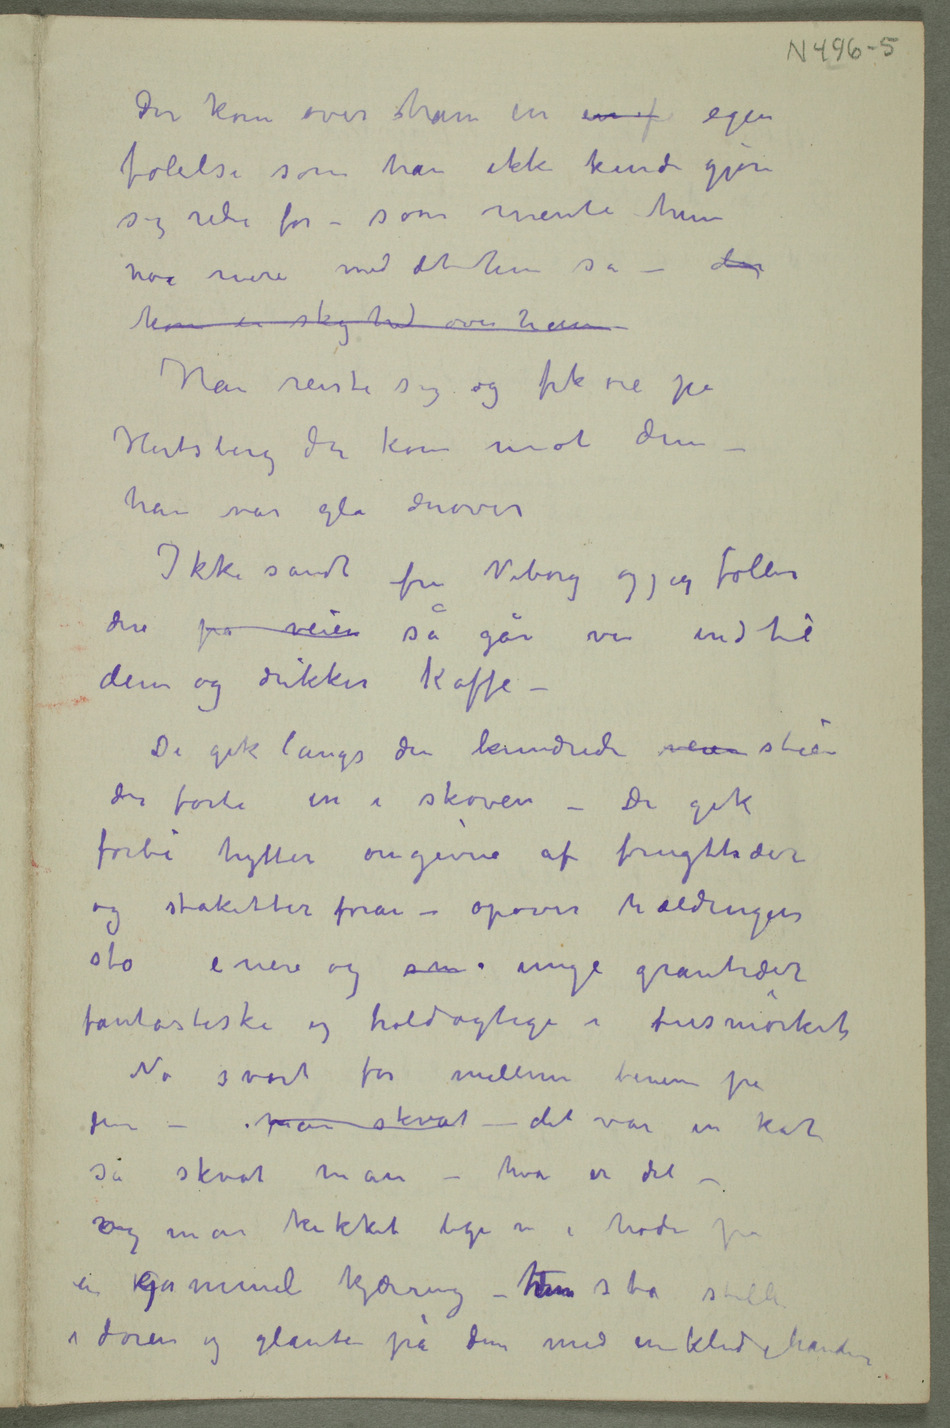 N496-5
Der kom over ham en en f egen
følelse som han ikke kunde gjøre
sig rede for – som mente hun
noe mere med det hun sa – der
kom en skyhed over ham –
Han reiste sig og fik øie på
Hertsberg der kom mot dem –
han var gla derover
Ikke sandt fru Viborg og jeg følger
dere på veien så går vi ind til
dem og drikker Kaffe –
De gik langs den brundrede veien stien
der førte in i skoven – De gik
forbi hytter omgivne af frugttræer
og staketter foran – opover hældingen
sto enere og sm unge grantræer
fantastiske og troldagtige i tusmørket
No svart for mellem benene på
en – man skvat – det var en kat
så skvat man – hva er det –
og man kikket lige in i hode på
en gammel kjærring – Hun sto stille
i døren og glante på dem med en klud i hånden